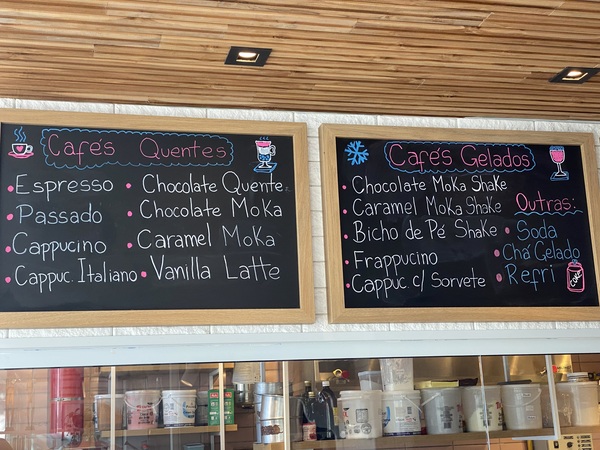 Café's Quentes
Espresso
Passado
Cappucino
Cappuc. Italiano
Chocolate Quente
Chocolate Moka
Caramel Moka
Vanilla Latte
Café's Gelados
Chocolate Moka Shake
Caramel Moka Shake
Bicho de Pé Shake
Frappucino
Cappuc c/ Sorvete
Outras:
Soda
Chá Gelado
Refri
Coke